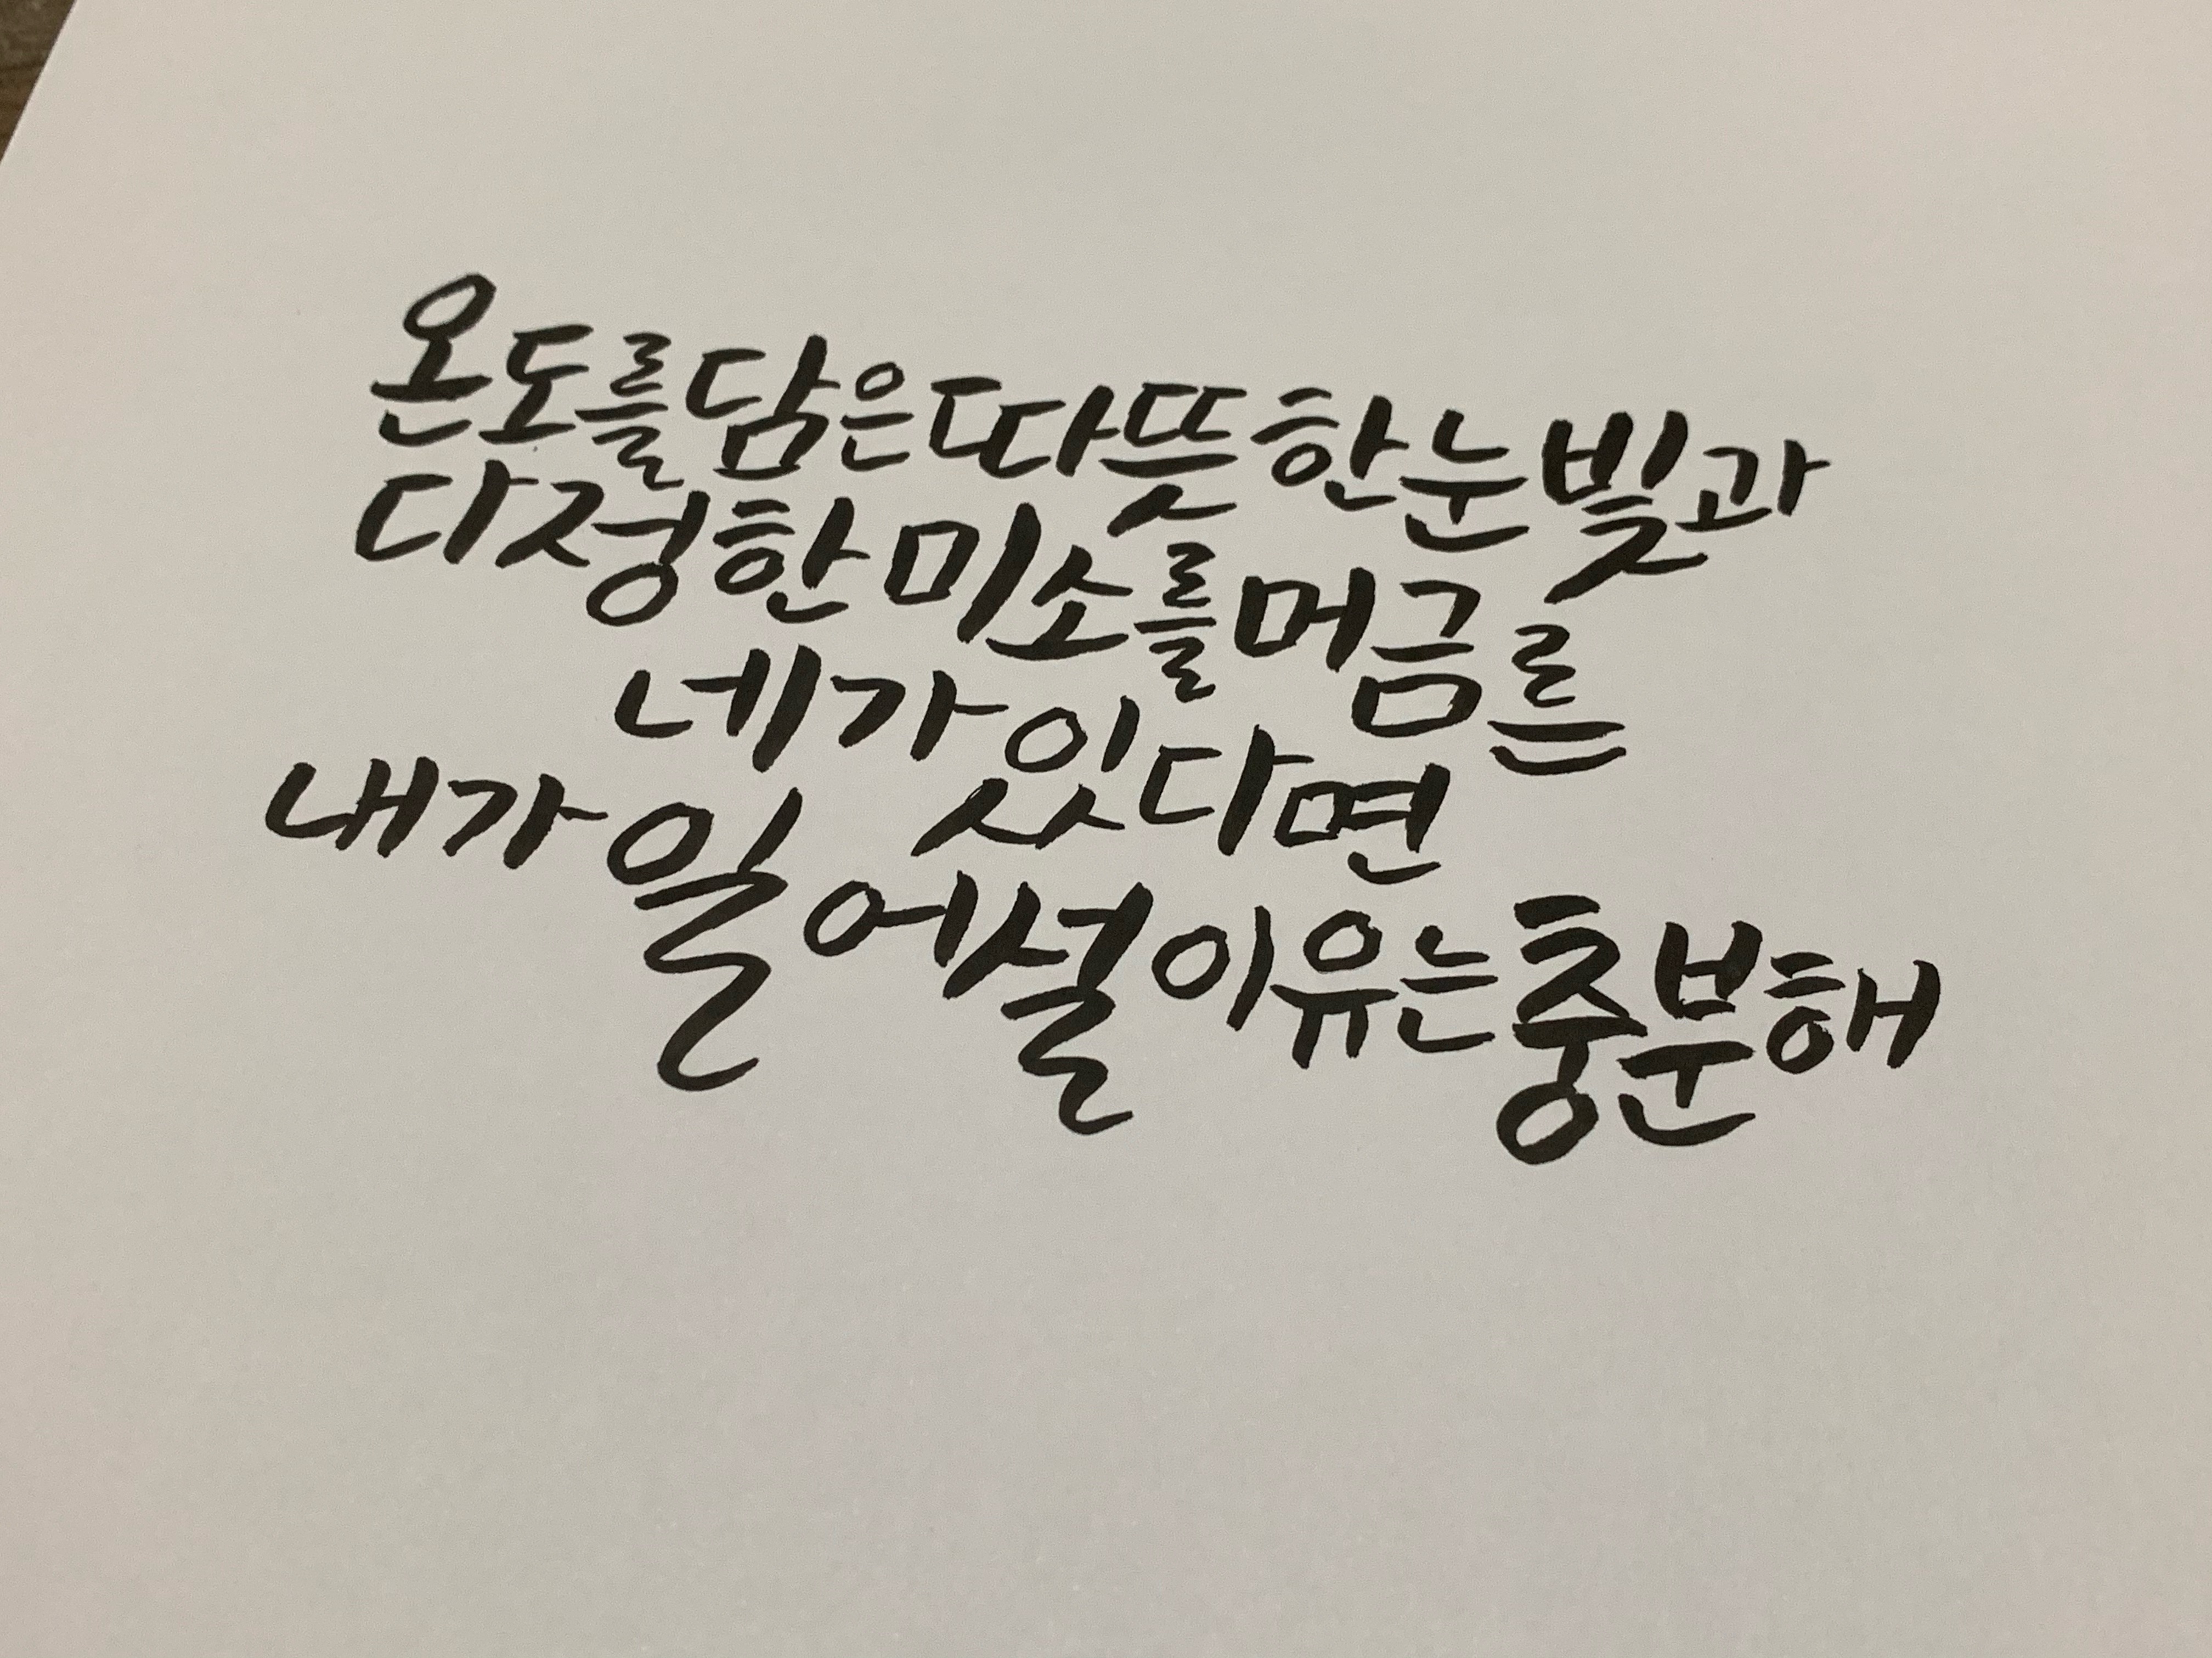 온도를 담은 따뜻한 눈빛과
다정한 미소를 머금른
네가 있다면
내가 일어설 이유는 충분해